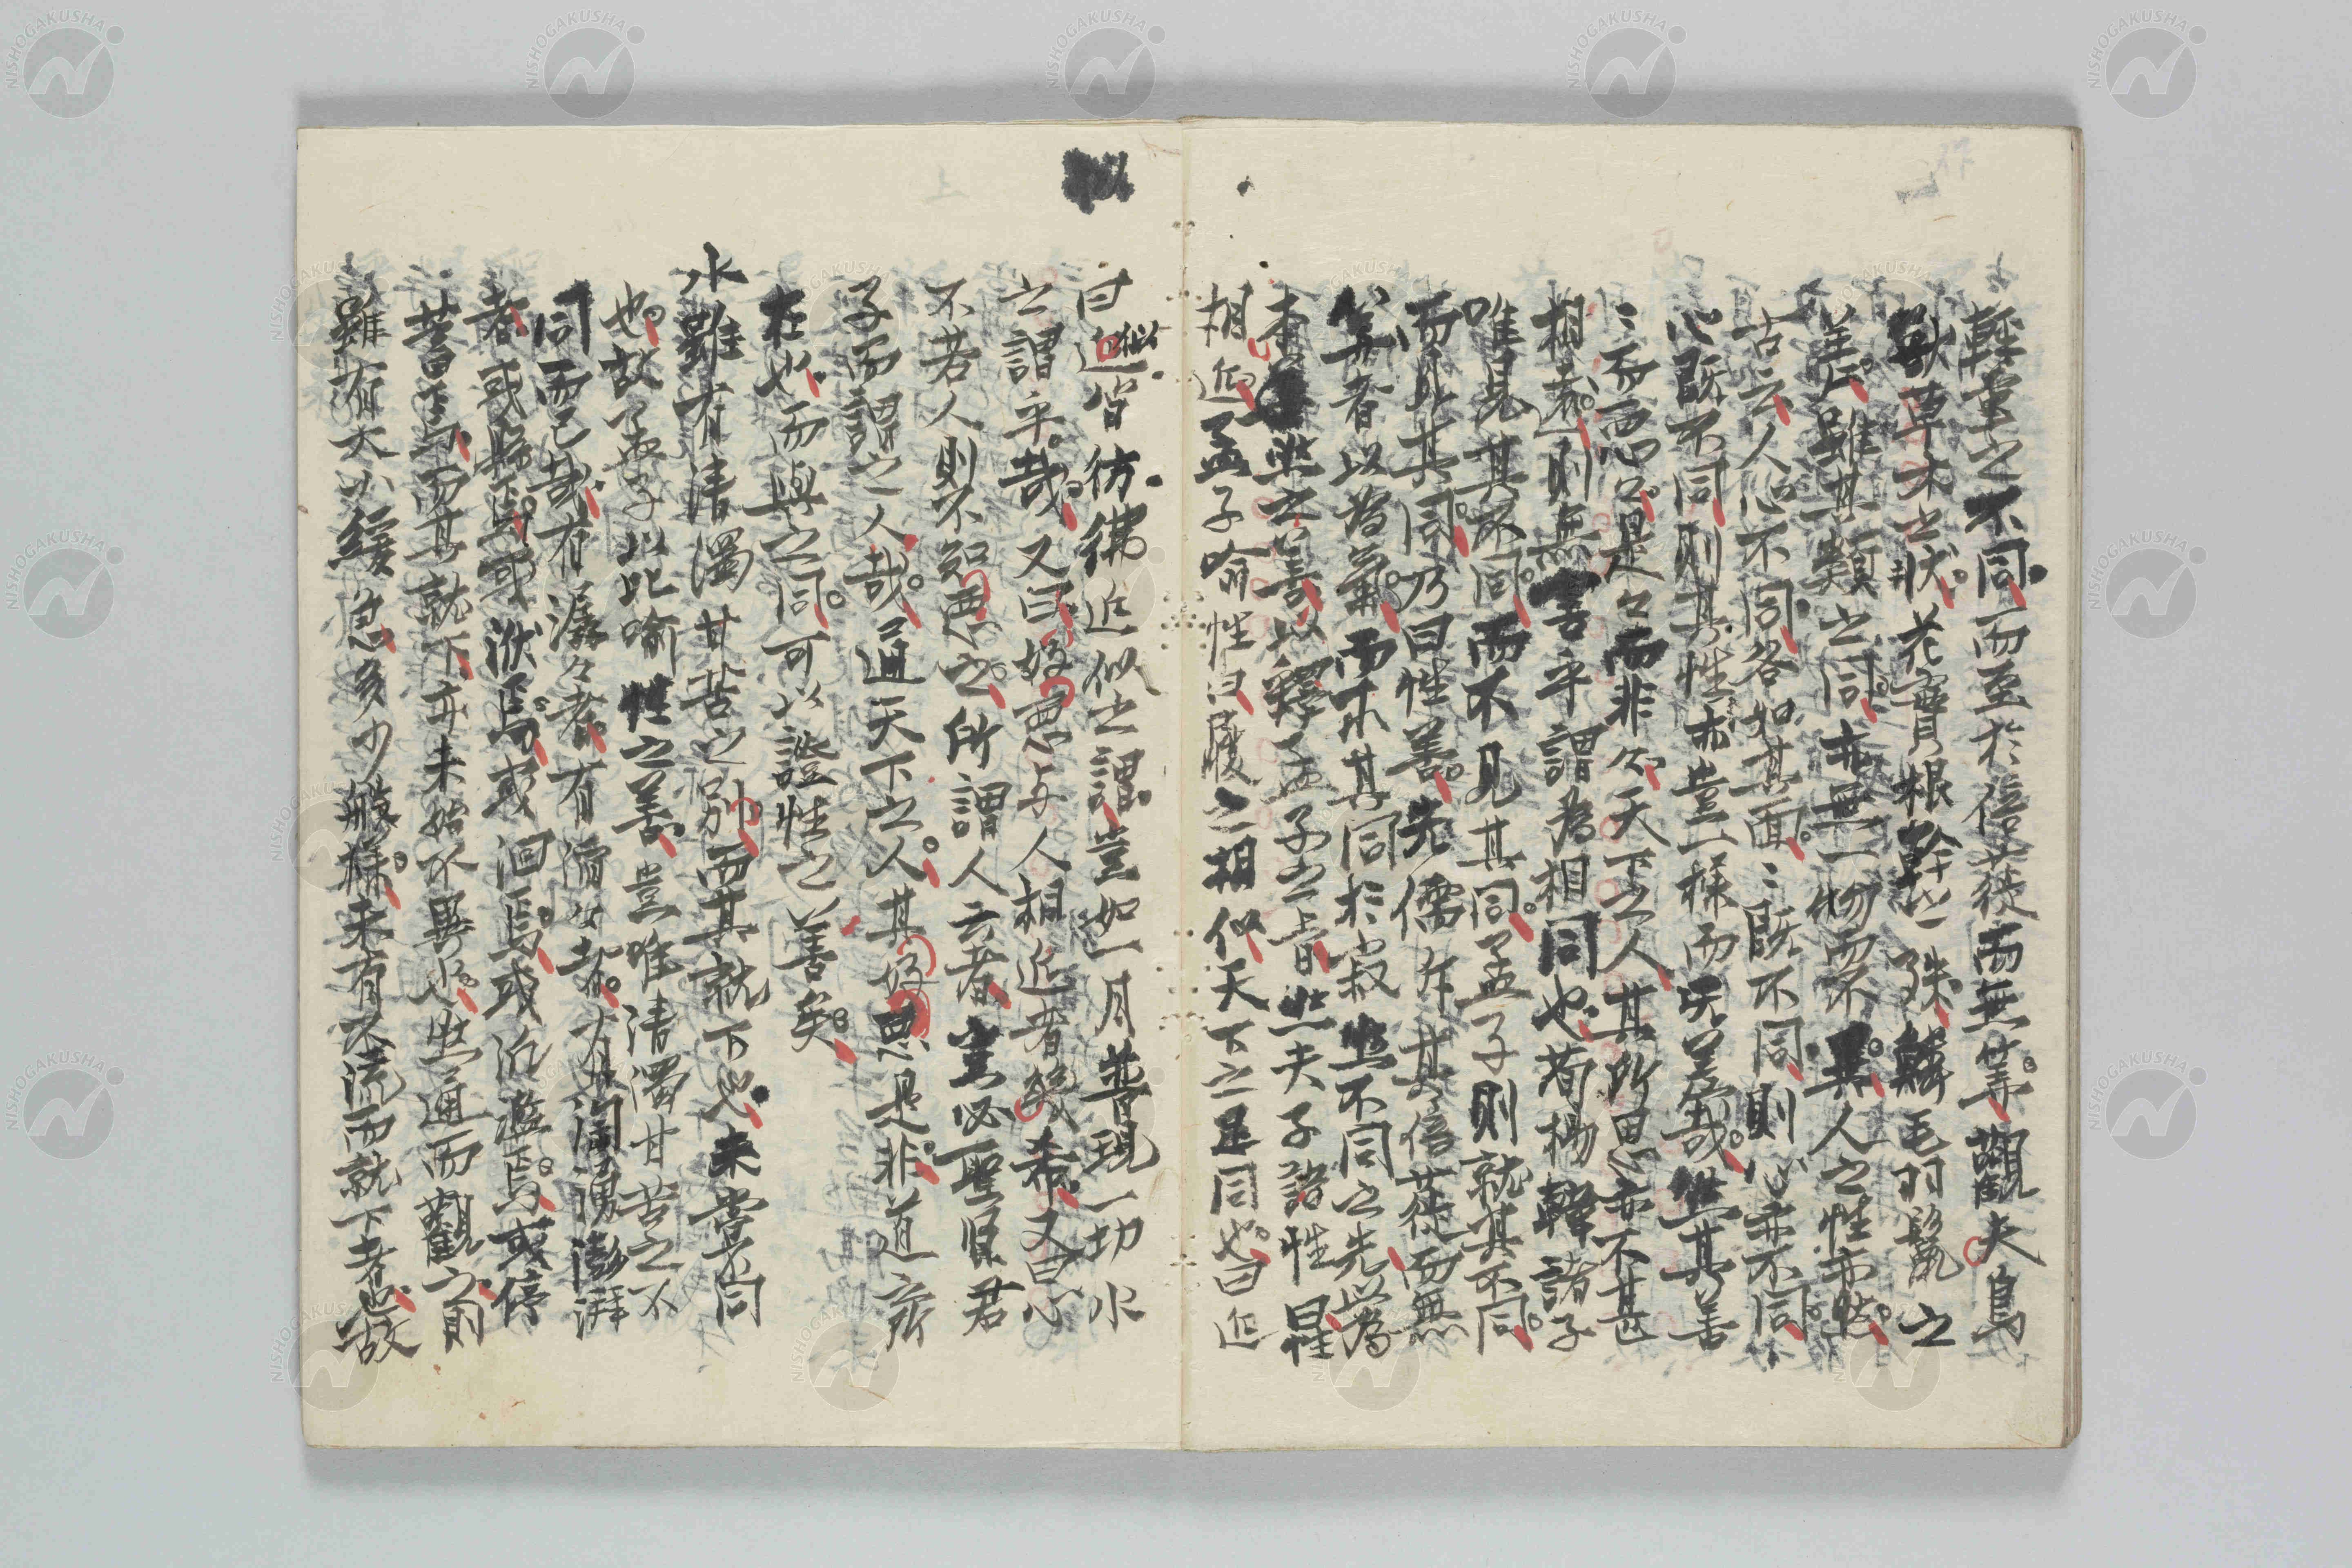 輕重之不同而至於倍蓰而無筭觀夫鳥
獸草木之狀花實根幹一殊鱗毛羽鬣之
差斥雖其類之同亦無一物而不異人之性亦然
古云人心不同各如其面〻既不同則心亦不同
心既不同則其性亦豈一樣而無差哉然其善
〻而惡〻是々而非々天下之人其所思亦不甚
相遠則無害乎謂為相同也荀楊韓諸子
唯見其不同而不見其同孟子則就其不同
而見其同乃曰性善先儒斥其倍蓰而無
筭者以為氣而求其同於寂然不同之先以為
本然之善以釋孟子之言然夫子語性曰性
相近孟子喻性曰履之相似天下之足同也曰近
曰似皆彷彿近似之謂豈如一月普現一切水
之謂乎哉又曰好惡與人相近者幾希又曰心
不若人則不知惡之所謂人云者豈必聖賢君
子而謂之人哉通天下之人其好惡是非道齊
在也而與之同可以證性之善矣
水雖有清濁甘苦之別而其就下也未嘗不同
也故孟子以此喻性之善豈唯清濁甘苦之不
同而已哉有潺々者有濔々者有洶湧澎湃
者或縣焉或洑焉或洄焉或氾濫焉或停
蓄焉而其就下亦未始不異也然通而觀之則
雖有大小緩急多少般樣未有不流而就下者也故